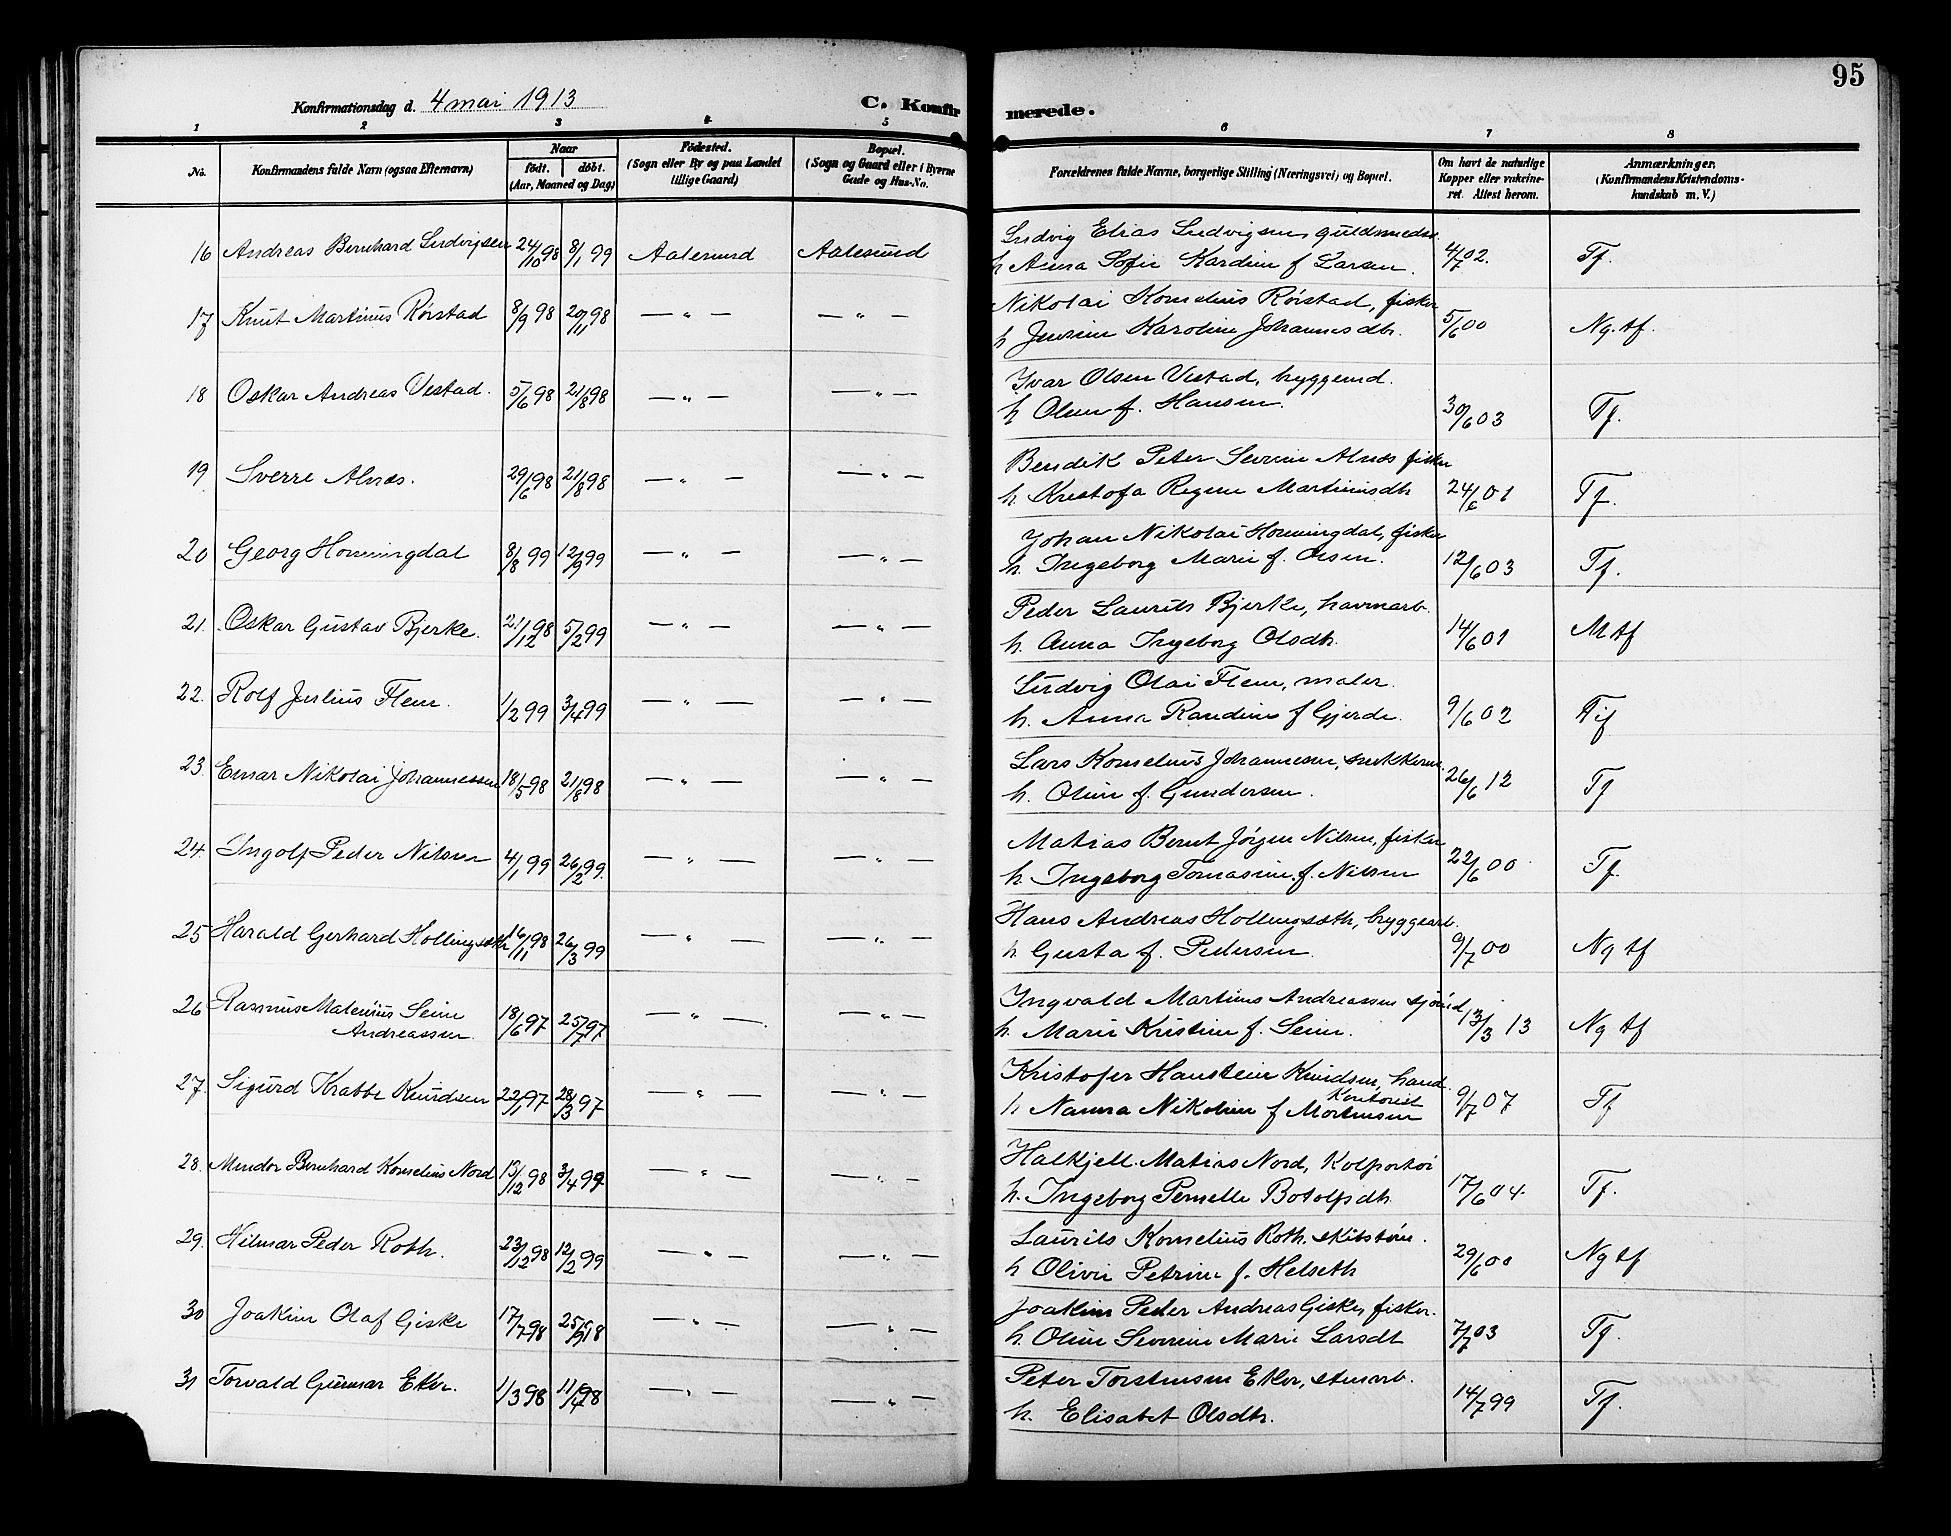 95
Konfirmationsdag d. 4 mai 1913
C. Konfirmerede.
1 2 3 4 5 6 7 8
No. Konfirmandens fulde Navn (ogsaa Efternavn) Naar født. døbt. (Aar, Maaned og Dag) Fødested. (Sogn eller By og paa Landet tillige Gaard) Bopæl. (Sogn og Gaard eller i Byerne Gade og Hus-No. Forældrenes fulde Navne, borgerlige Stilling (Næringsvei) og Bopæl. Om havt de naturlige Kopper eller vakcineret. Attest herom. Anmærkninger. (Konfirmandens Kristendomskundskab m. V.)
16 Andreas Bernhard Ludvigsen 24/10 98 8/1 99 Aalesund Aalesund Ludvig Elias Ludvigsen guldsmedsv. 4/7 02. Tf.
h Anna Sofie Kardine f Larsen.
17 Knut Martinus Rørstad 8/9 98 20/11 98 — " — — " — Nikolai Kornelius Rørstad, fisker 5/6 00 Ng. tf.
h Jensine Karoline Johannesdtr.
18 Oskar Andreas Vestad. 5/6 98 21/8 98 — " — — " — Ivar Olsen Vestad, byggemd.
h Oline f. Hansen. 30/6 03 Tf.
19 Sverre Alnæs. 29/6 98 21/8 98 — " — — " — Bendik Peter Severin Alnæs fisker
h. Kristofa Regine Martinusdtr 24/6 01 Tf.
20 Georg Honningdal 8/8 99 12/9 99 — " — — " — Johan Nikolai Honningdal, fisker
h. Ingeborg Marie f. Olsen. 12/6 03 Tf.
21. Oskar Gustav Bjerke. 21/12 98 5/2 99 — " — — " — Peder Laurits Bjerke, havnarb.
h. Anna Ingeborg Olsdtr. 14/6 01 M tf
22. Rolf Julius Flem. 1/2 99 3/4 99 — " — — " — Ludvig Olai Flem, maler.
h. Anna Randine f Gjerde. 9/6 02 Tf
23. Einar Nikolai Johannessen 18/5 98 21/8 98 — " — — " — Lars Kornelius Johannesen, snekkerm.
h. Oline f. Gundersen. 26/6 12 Tf
24. Ingolf Peder Nilsen 4/1 99 26/2 99. — " — — " — Matias Bernt Jørgen Nilsen, fisker
h. Ingeborg Tomasine f. Nilsen 22/6 00 Tf.
25 Harald Gerhard Hollingsæth 16/11 98 26/3 99 — " — — " — Hans Andreas Hollingsæth, byggearb.
h. Gusta f. Pedersen. 9/7 00 Ng tf
26 Rasmus Matenius Seim 18/6 97 25/7 97 — " — — " — Ingvald Martines Andreassen sjømd
Andreassen. h. Marie Kristine f. Seim. 13/3 13 Ng tf
27. Sigurd Krabbe Knudsen 22/1 97 28/3 97 — " — — " — Kristofer Hanstein Knudsen, hand.
kontorist
h Nanna Nikoline f Mortensen 9/7 07 Tf
28. Mindor Bernhard Kornelius Nord 13/12 98 3/4 99 — " — — " — Halkjell Matias Nord, Kolportør
h. Ingeborg Pernelle Botolfsdtr. 17/6 04. Tf.
29. Hilmar Peder Roth. 23/12 98 12/2 99 — " — — " — Laurits Kornelius Roth. skibstøm.
h Olivie Petrine f. Helseth 29/6 00 Ng tf
30 Joakim Olaf Giske 17/7 98 25/9 98 — " — — " — Joakim Peder Andreas Giske, fisker.
h. Oline Severine Marie Larsdt 7/7 03 Tf.
31 Torvald Gunnar Eker. 1/3 98 11/4 98 — " — — " — Peter Torstensen Eker, stenarb.
h. Elisabet Olsdtr. 14/7 99 Tf.